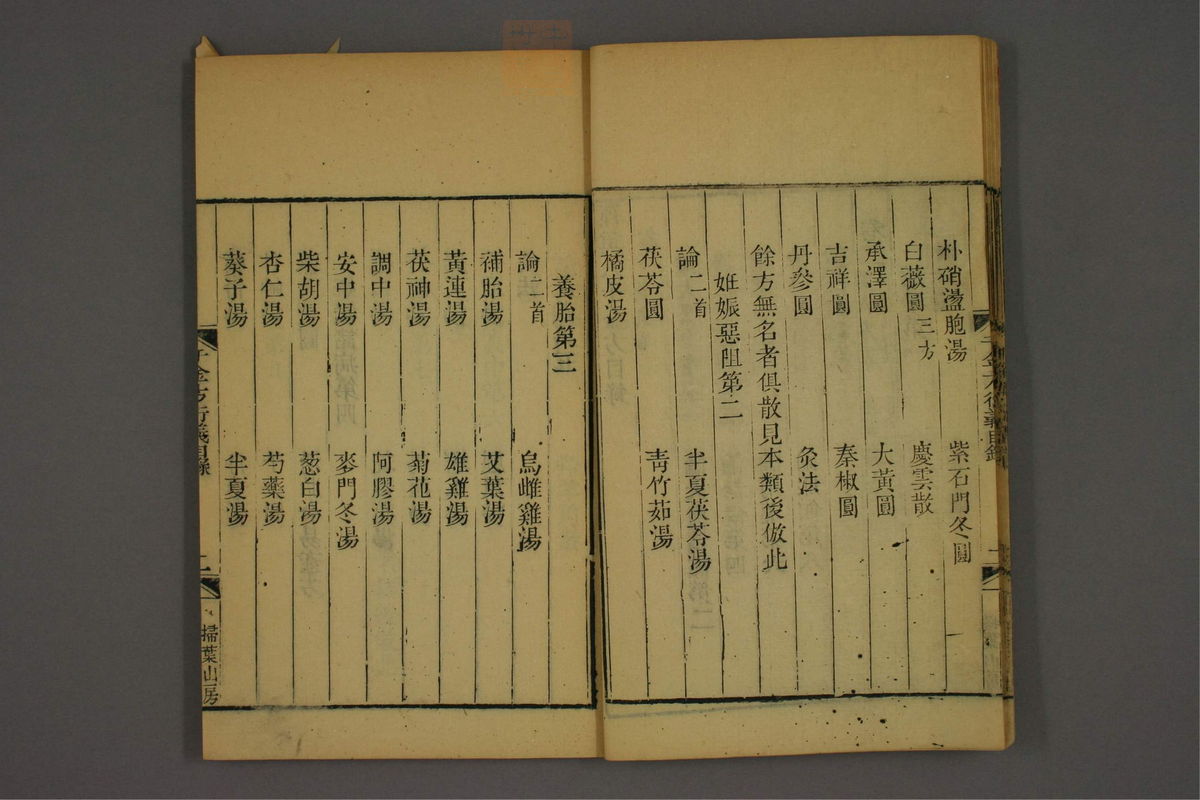 朴硝盪胞湯　紫石門冬圓
白薇圓三方　慶雲散
承澤圓　大黃圓
吉祥圓　秦椒圓
丹參圓　灸法
餘方無名者俱散見本類後倣此
姙娠惡阻第二
論二首　半夏茯苓湯
茯苓圓　靑竹茹湯
橘皮湯
養胎第三
論二首　烏雌雞湯
補胎湯　艾葉湯
黃連湯　雄雞湯
茯神湯　菊花湯
調中湯　阿膠湯
安中湯　麥門冬湯
柴胡湯　葱白湯
杏仁湯　芍藥湯
葵子湯　半夏湯
千金方衍義目錄　二
掃葉山房